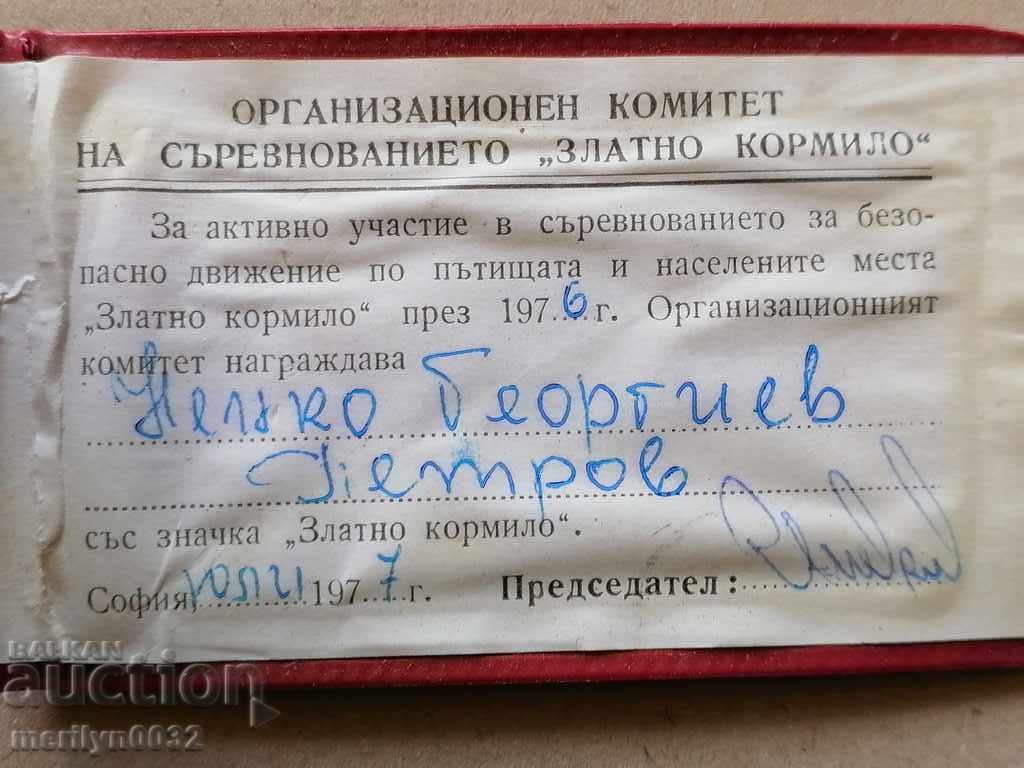 ОРГАНИЗАЦИОНЕН КОМИТЕТ
НА СЪРЕВНОВАНИЕТО „ЗЛАТНО КОРМИЛО“
За активно участие в съревнованието за безо-
пасно движение по пътищата и населените места
„Златно кормило“ през 1976 г. Организационният
комитет награждава
Георгиев
Петров
със значка „Златно кормило“.
София, юли 1977 г. Председател:
БАЛКАН
auction
merilyn0032